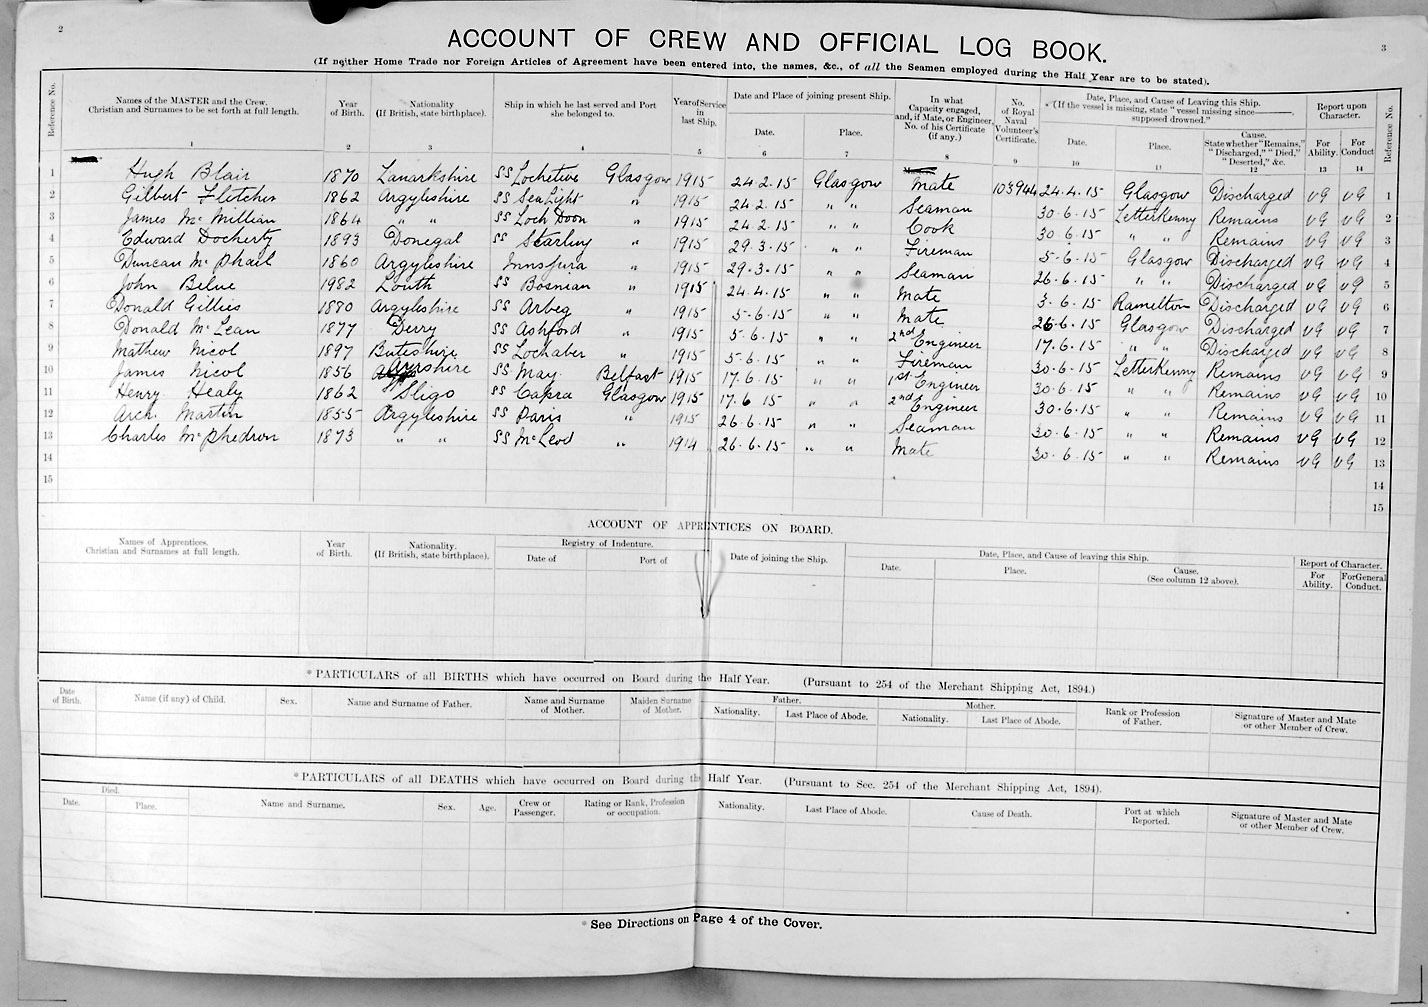 2
3
ACCOUNT OF CREW AND OFFICIAL LOG BOOK.
(If neither Home Trade nor Foreign Articles of Agreement have been entered into, the names, &c., of all the Seamen employed during the Half Year are to be stated).
Reference No. Names of the MASTER and the Crew. Christian and Surnames to be set forth at full length. Year of Birth. Nationality (If British, state birthplace). Ship in which he last served and Port she belonged to. Year of Service in last Ship. Date and Place of joining present Ship. Date. Place. In what Capacity engaged, and, if Mate, or Engineer, No. of his Certificate (if any.) No. of Royal Naval Volunteer's Certificate. Date, Place, and Cause of Leaving this Ship. *(If the vessel is missing, state "vessel missing since———, supposed drowned." Date. Place. Cause. State whether "Remains," "Discharged," "Died," "Deserted," &c. Report upon Character. For Ability. For Conduct Reference No.
1 2 3 4 5 6 7 8 9 10 11 12 13 14
1 Hugh Blair 1870 Lanarkshire SS Lochetive Glasgow 1915 24.2.15 Glasgow Mate 103944 24.4.15 Glasgow Discharged VG VG 1
2 Gilbert Fletcher 1862 Argyleshire SS Sealight " 1915 24.2.15 " " Seaman 30.6.15 Letterkenny Remains VG VG 2
3 James McMillian 1864 " " SS Loch Doon " 1915 24.2.15 " " Cook 30.6.15 " " Remains VG VG 3
4 Edward Docherty 1893 Donegal SS Starling " 1915 29.3.15 " " Fireman 5-6.15 Glasgow Discharged VG VG 4
5 Duncan McPhail 1860 Argyleshire " 1915 29.3.15 " " Seaman 26.6.15 " " Discharged VG VG 5
6 John 1982 Louth SS Bosnian " 1915 24.4.15 " " Mate 3.6.15 Ramelton Discharged VG VG 6
7 Donald Gillies 1880 Argyleshire SS Arbeg " 1915 5-6.15 " " Mate 26.6.15 Glasgow Discharged VG VG 7
8 Donald McLean 1877 Derry SS Ashford " 1915 5.6.15 " " 2nd Engineer 17.6.15 " " Discharged VG VG 8
9 Mathew Nicol 1897 Buteshire SS Lochaber " 1915 5-6.15 " " Fireman 30.6.15 Letterkenny Remains VG VG 9
10 James Nicol 1856 Ayrshire SS May Belfast 1915 17.6.15 " " 1st Engineer 30.6.15 " " Remains VG VG 10
11 Henry Healy 1862 Sligo SS Capra Glasgow 1915 17.6 15 " " 2nd Engineer 30.6.15 " " Remains VG VG 11
12 Arch. Martin 1855 Argyleshire SS Paris " 1915 26.6.15 " " Seaman 30.6.15 " " Remains VG VG 12
13 Charles McPhedron 1873 " " SS McLeod " 1914 26.6.15 " " Mate 30.6.15 " " Remains VG VG 13
14 14
15 15
ACCOUNT OF APPRENTICES ON BOARD.
Names of Apprentices. Christian and Surnames at full length. Year of Birth. Nationality. (If British, state birthplace). Registry of Indenture. Date of Port of Date of joining the Ship. Date, Place, and Cause of leaving this Ship. Date. Place. Cause. (See column 12 above). Report of Character. For Ability. For General Conduct.
*PARTICULARS of all BIRTHS which have occurred on Board during the Half Year. (Pursuant to 254 of the Merchant Shipping Act, 1894.)
Date of Birth. Name (if any) of Child. Sex. Name and Surname of Father. Name and Surname of Mother. Maiden Surname of Mother. Father. Nationality. Last Place of Abode. Mother. Nationality. Last Place of Abode. Rank or Profession of Father. Signature of Master and Mate or other Member of Crew.
*PARTICULARS of all DEATHS which have occurred on Board during the Half Year. (Pursuant to Sec. 254 of the Merchant Shipping Act, 1894).
Died. Date. Place. Name and Surname. Sex. Age. Crew or Passenger. Rating or Rank, Profession or occupation. Nationality. Last Place of Abode. Cause of Death. Port at which Reported. Signature of Master and Mate or other Member of Crew.
*See Directions on Page 4 of the Cover.